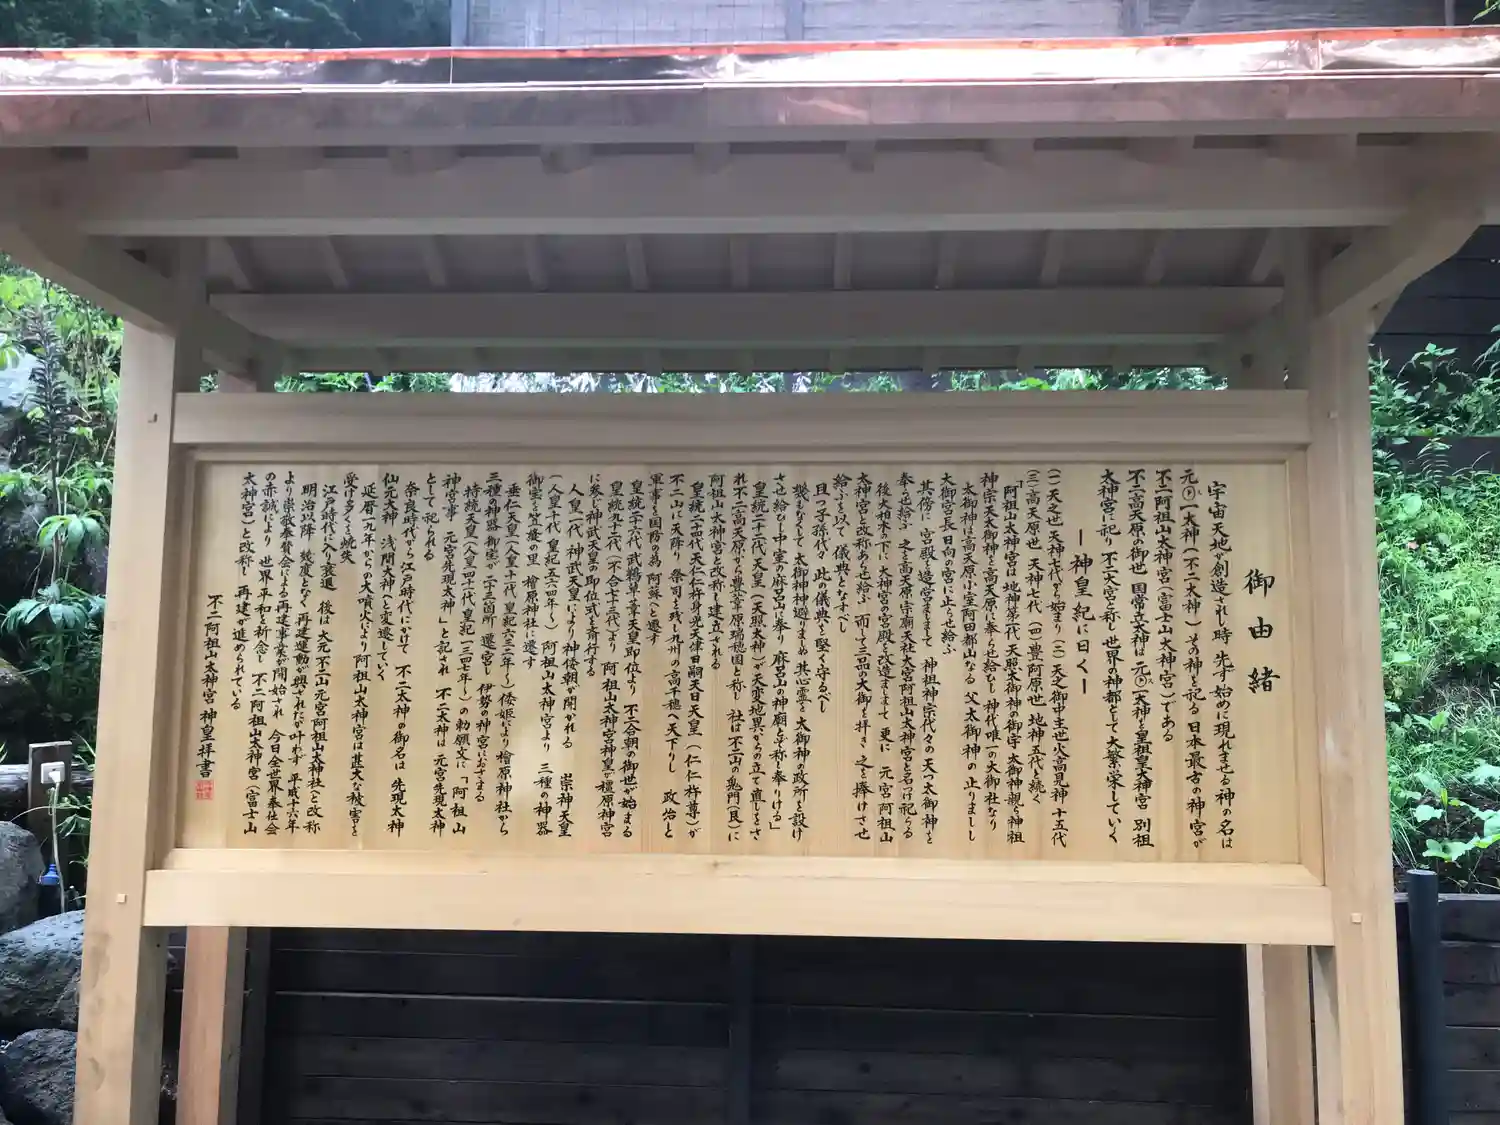 御由緒
宇宙天地が創造されし時 先ず始めに現れませる神の名は
元一大神(不二太神)その神を祀る 日本最古の神宮が
不二阿祖山太神宮(富士山太神宮)である
不二高天原の御世 国常立大神は 元一大神を皇祖皇大神宮 別祖
太神宮に祀り 不二大宮と称し 世界の神都として大繁栄していく
ー神皇紀に曰くー
(一)天之世 天神七代から始まり(二)天之御中主世火高見神十五代
(三)高天原世 天神七代(四)豊阿原世 地神五代と続く
「阿祖山太神宮は 地神第一代 天照太御神の御宇 太御神親ら神祖
神宗天太御神を高天原に奉らせ給ひし神代唯一の大御社なり
太御神は高天原小室阿田都山なる 父太御神の止りましし
大御宮宮長日向の宮に止らせ給ふ
其傍に宮殿を造営ましまして 神祖神宗代々の天つ太御神を
奉らせ給ふ 之を高天原宗廟天社大宮阿祖山太神宮と名つけ祀らる
後大和木の下に 大神宮の宮殿を改造ましまして 更に 元宮阿祖山
太神宮と改称あらせ給ふ 而して三品の大御を拝き 之を捧けさせ
給ふを以て 儀典となすべし
且つ子孫代々 此の儀典を堅く守るべし
幾もなくして 太御神神避りまし 其心霊を 大御神の政所を設け
させ給ひし中室の麻呂山に奉り 麻呂山の神廟とぞ称へ奉りける」
皇統二十二代 天皇(天照太神)が天変地異からの立て直しをさ
れ 不二高天原から豊葦原瑞穂国と称し 社は不二山の鬼門(艮)に
阿祖山太神宮と改称し建立される
皇統二十四代 天仁仁杵身光天津日嗣天日天皇(仁仁杵尊)が
不二山に天降り 祭司を残し九州の高千穂へ天下りし 政治と
軍事を国防の為 阿蘇へと遷す
皇統二十六代 武鵜草葺不合天皇即位より 不二合朝の御世が始まる
皇統九十八代(不合七十三代)より 阿祖山太神宮神皇が橿原神宮
に参じ神武天皇の即位式を斎行する
人皇一代 神武天皇により神倭朝が開かれる 崇神天皇
(人皇十代 皇紀五六四年〜)阿祖山太神宮より 三種の神器
御霊を笠縫の里 檜原神社に遷す
垂仁天皇(人皇十一代 皇紀六三二年〜)倭姫により檜原神社から
三種の神器 御霊が二十三箇所 遷宮し 伊勢の神宮におさまる
持統天皇(人皇四十一代 皇紀一三四七年〜)の勅願文に「阿祖山
神宮事 元宮先現太神」と記され 不二太神は 元宮先現太神
として祀られる
奈良時代から江戸時代にかけて 不二太神の御名は 先現太神
仙元大神 浅間大神へと変遷していく
延暦一九年からの大噴火により阿祖山太神宮は甚大な被害を
受け多くを焼失
江戸時代に入り衰退 後は 大元不二山元宮阿祖山太神社と改称
明治以降 幾度となく再建運動が興されたが叶わず 平成十六年
より崇敬奉賛会による再建事業が開始され 今日 全世界奉仕会
の赤誠により 世界平和を祈念し 不二阿祖山太神宮(富士山
太神宮)と改称し 再建が進められている
不二阿祖山太神宮 神皇祥書